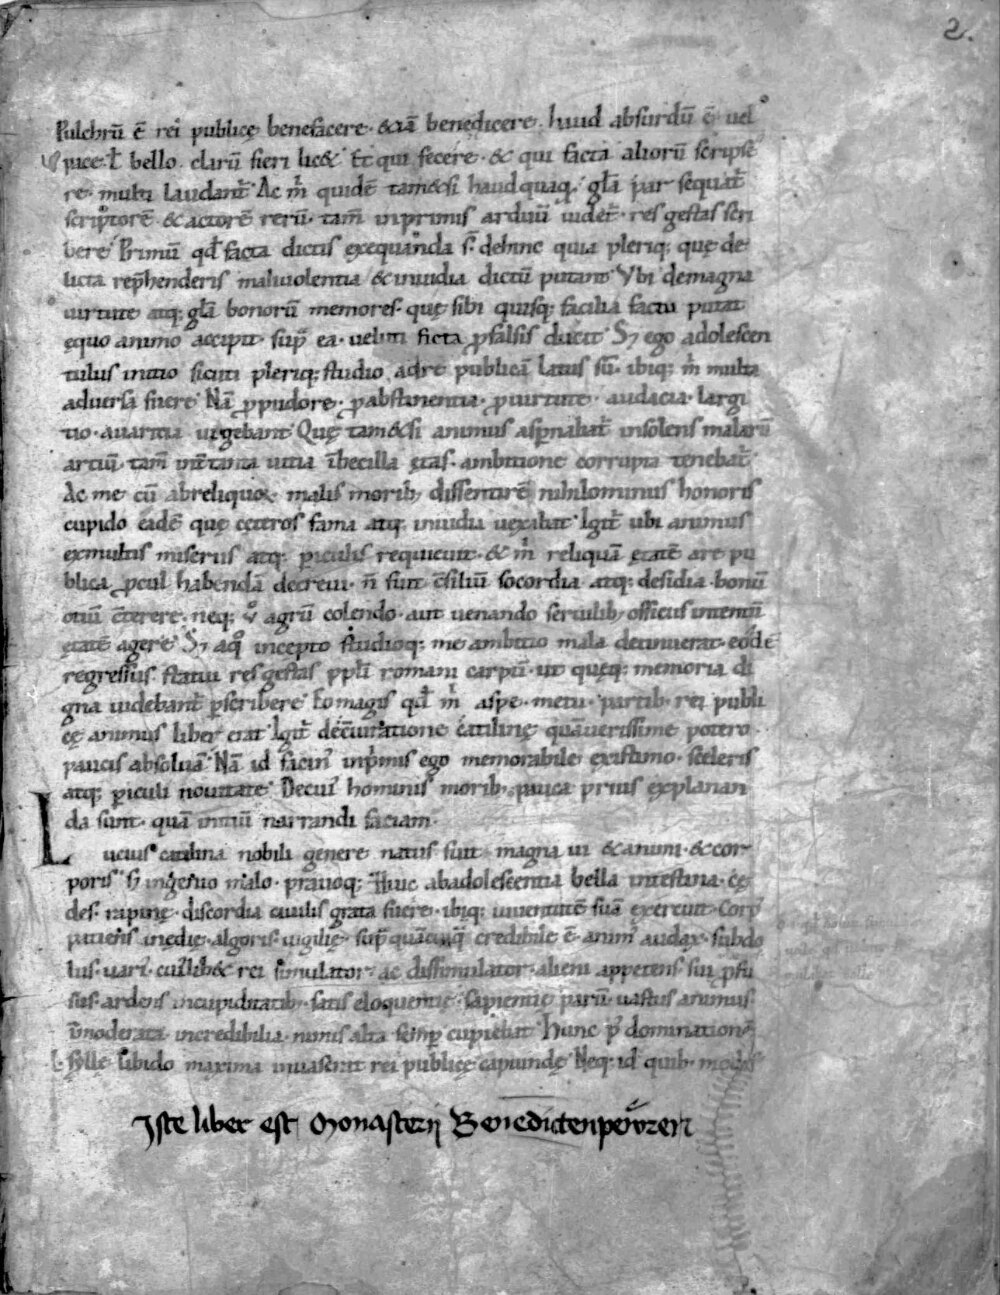 2.
Pulchrū ē rei publicę benefacere· &iā benedicere· haud absurdū ē· uel
pace· ł bello· clarū fieri lic&· Et qui fecere· & qui facta aliorū scripse
re· multi laudant̄· Ac m̄ quidē tam&si haudquaq̨· gł̄a par sequat̄
scriptorē & actorē rerū· tam̄ inprimis arduū uidet̄· res gestas scri
bere· Primū qd̄ facta dictis exequanda s̄· dehinc quia pleriq; quę de
licta rep̄henderis maliuolentia & inuidia dictū putant· Vbi demagna
uirtute atq; gł̄a bonorū memores· quę sibi quisq; facilia factu putat
ęquo animo accipit· sup̄ ea· ueluti ficta ꝓfalsis ducit· Sꝫ ego adolescen
tulus initio sicuti pleriq; studio adrē publicā latus sū· ibiq; m̄ multa
aduersa fuere· Nā ꝓpudore· ꝓabstinentia· ꝓuirtute· audacia· largi
tio· auaritia uigebant· Quę tam&si animus asp̄nabat̄ insolens malarū
artiū· tam̄ int̄tanta uitia ībecilla ętas· ambitione corrupta tenebat̄·
Ac me cū abreliquoꝝ malis moribꝫ dissentirē nihilominus honoris
cupido eadē quę ceteros fama atq; inuidia uexabat· Igit̄ ubi animus
exmultis miseriis atq; ꝑiculis requieuit· & m̄ reliquā ętatē a re pu
blica ꝓcul habendā decreui· n̄ fuit c̄siliū socordia atq; desidia bonū
otiū c̄terere· neq; ů agrū colendo· aut uenando seruilibꝫ officiis intentū
ętatē agere· Sꝫ aq̊ incepto studioq; me ambitio mala detinuerat· eodē
regressus· statui res gestas ppłi romani carptī· ut quęq; memoria di
gna uidebant̄ ꝑscribere· Eo magis qd̄ m̄ aspe· metu· partibꝫ rei publi
cę animus liber erat· Igit̄ dec̄iuratione catilinę quāuerissime potero
paucis absoluā· Nā id facin̄ inp̄mis ego memorabile existimo· sceleris
atq; ꝑiculi nouitate· Decui᷒ hominis moribꝫ pauca prius explanan
da sunt· quā initiū narrandi faciam·
Lucius catilina nobili genere natus fuit magna ui & animi· & cor-
poris· sꝫ ingenio malo· prauoq; Huic abadolescentia bella intestina· cę
des· rapinę· discordia ciuilis grata fuere· ibiq; iuuentutē suā exercuit· Corp᷒
patiens inedię· algoris· uigilię· sup̄quācuiq̨ credibile ē· anim᷒ audax· subdo
lus· uari᷒· cui᷒lib& rei simulator· ac dissimulator· alieni appetens· sui ꝓfu
sus· ardens incupiditatibꝫ· satis eloquentię· sapientię parū· uastus animus·
īmoderata· incredibilia· nimis alta semꝑ cupiebat· Hunc p᷒ dominationē
L· syllę libido maxima inuaserat rei publicę capiundę· Neq; id quibꝫ modis
Iste liber est Monasterij Benedictenpewren